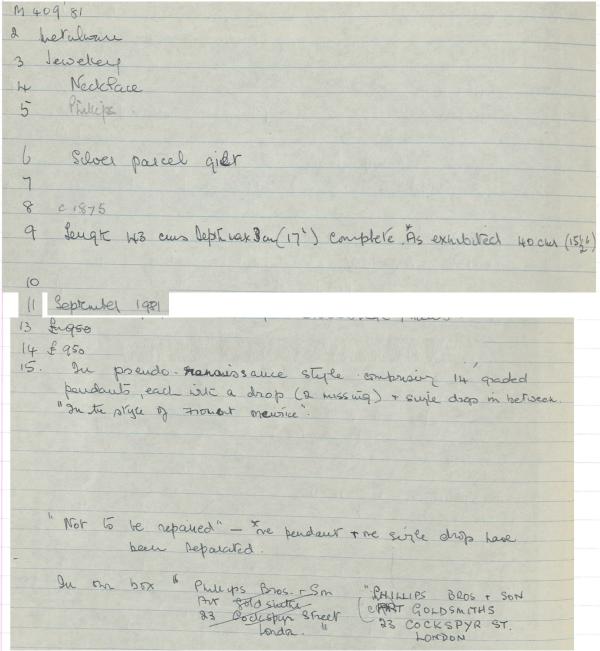 M 409 '81
2 Metalware
3 Jewellery
4 Necklace
5 Phillips
6 Silver parcel gilt
7
8 c 1875
9 Length 43 cms Depth max 3cm (17") complete. *As exhibited 40 cms (15 1/2")
10
11 September 1981
13 £950
14 £950
15. In pseudo-renaissance style comprising 14 graded
pendants, each with a drop (2 missing) + single drop in between.
"In the style of Froment Meurice".
"Not to be repaired" — *one pendant + one single drop have
been separated.
In own box " Phillips Bros. + Son
Art Goldsmiths
23 Cockspyr Street
London. "
"PHILLIPS BROS + SON
ART GOLDSMITHS
23 COCKSPYR ST.
LONDON